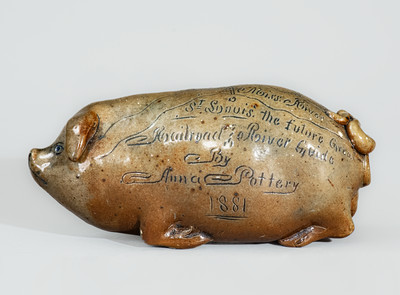 St. Louis the future Great
Railroad & River Guide
By
Anna Pottery
1881